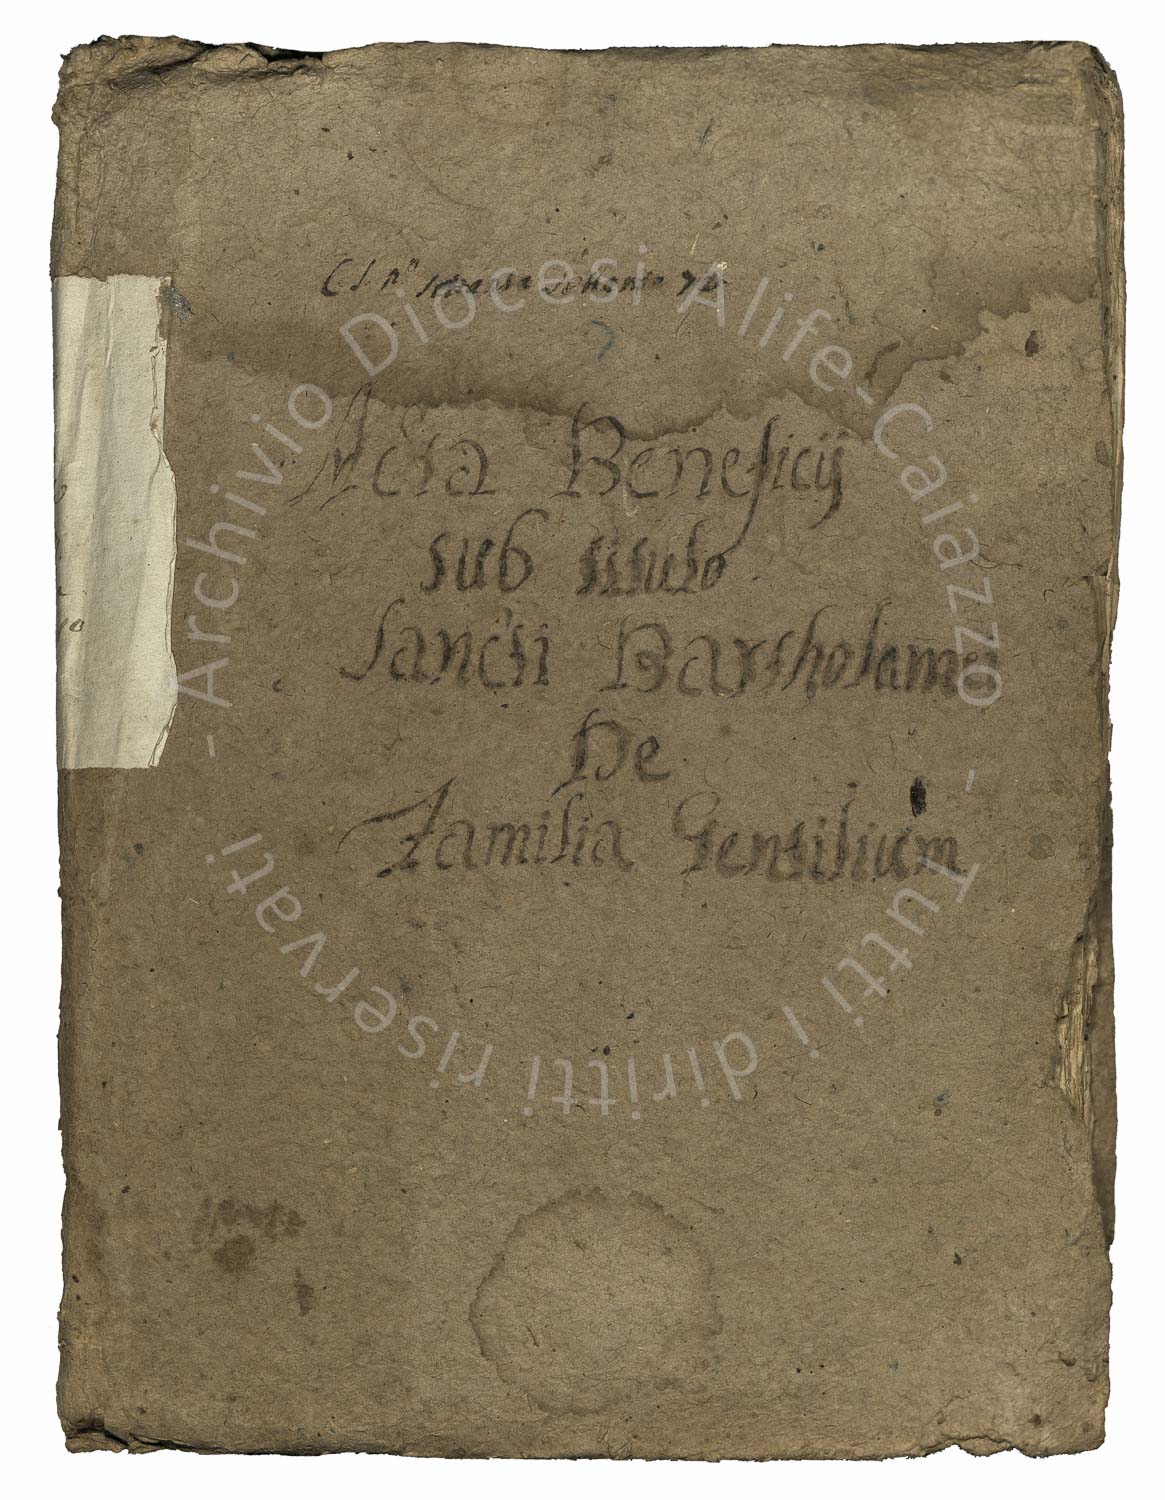 C. J. nº
Acta Beneficij
sub titulo
Sancti Bartholamei
De
Familia Gentilium
- Archivio Diocesi Alife-Caiazzo - Tutti i diritti riservati